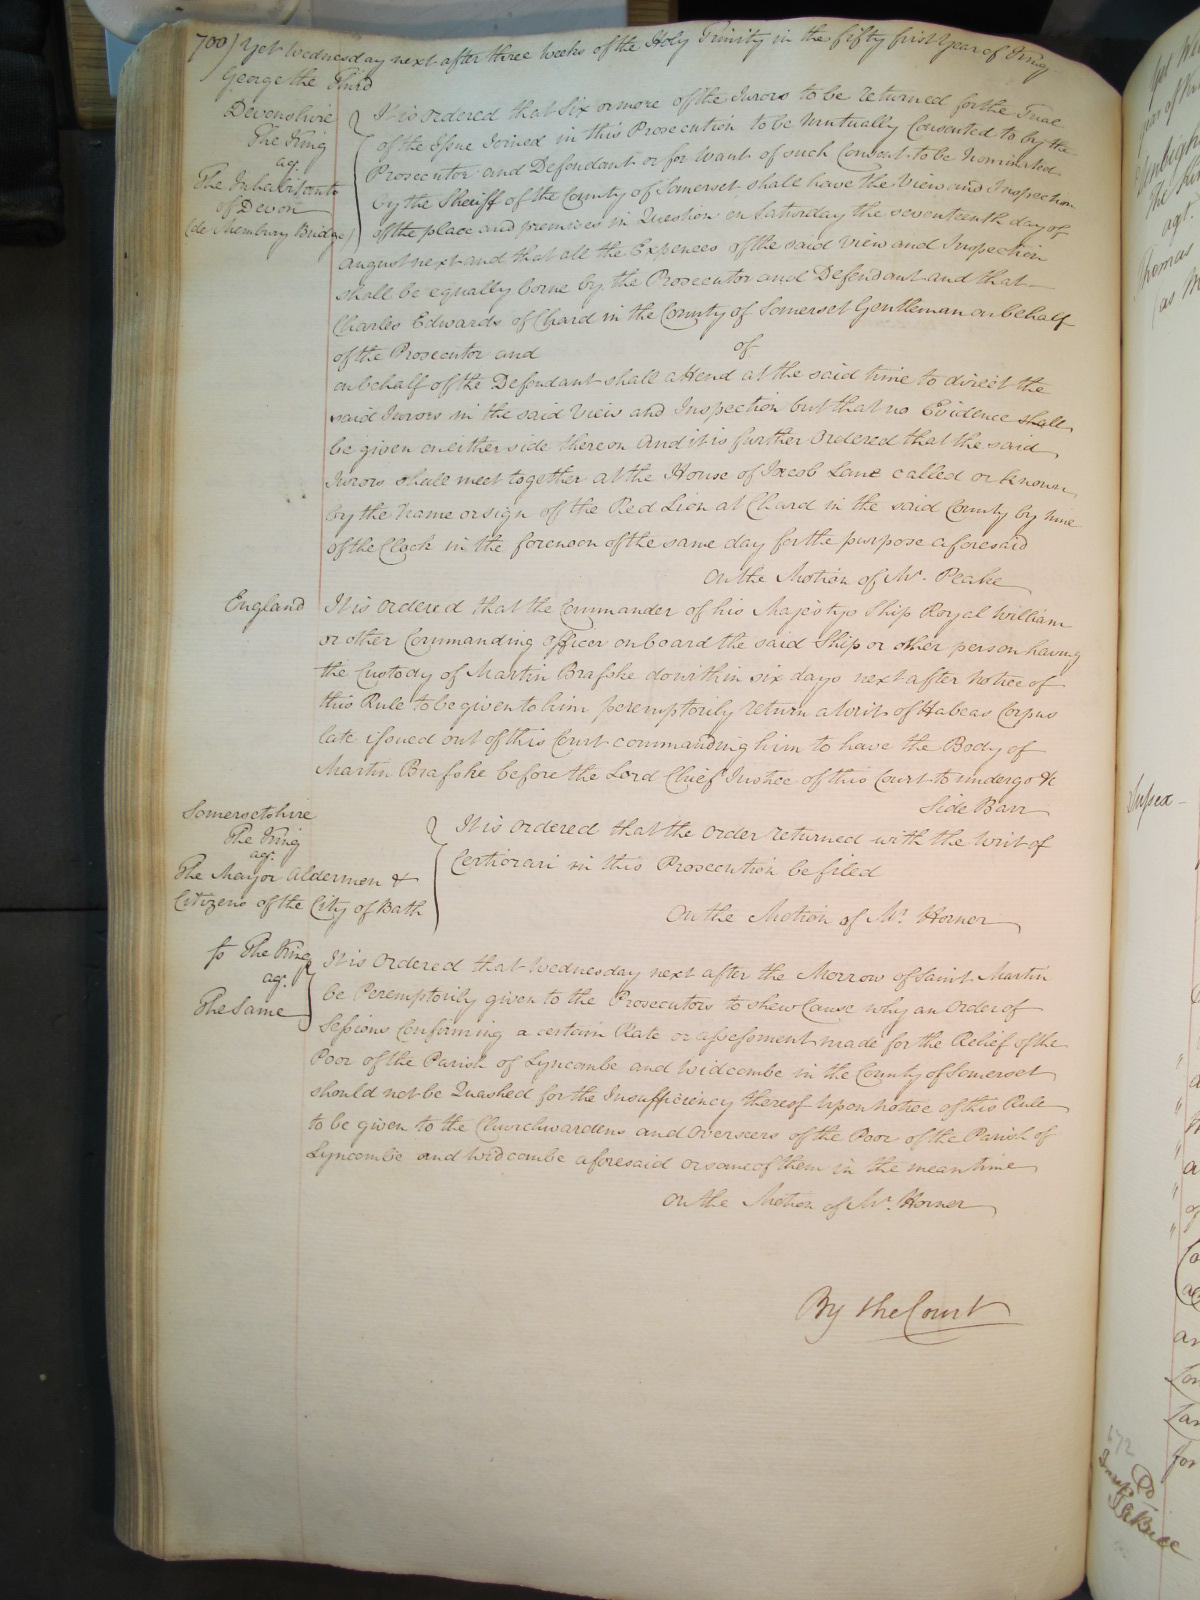 700) Yet Wednesday next after three Weeks of the Holy Trinity in the fifty first Year of King
George the Third
Devonshire
The King
agt.
The Inhabitants
of Devon
(de Bridge)
It is ordered that Six or more of the Jurors to be returned for the Trial
of the Issue Joined in this Prosecution to be Mutually Consented to by the
Prosecutor and Defendant or for Want of such Consent to be Nominated
by the Sheriff of the County of Somerset shall have the View and Inspection
of the place and premises in Question on Saturday the seventeenth day of
August next and that all the Expences of the said View and Inspection
shall be equally borne by the Prosecutor and Defendant and that
Charles Edwards of Chard in the County of Somerset Gentleman on behalf
of the Prosecutor and of
on behalf of the Defendant shall attend at the said time to direct the
said Jurors in the said View and Inspection but that no Evidence shall
be given on either side thereon And it is further Ordered that the said
Jurors shall meet together at the House of Jacob Lane called or known
by the Name or sign of the Red Lion at Chard in the said County by nine
of the Clock in the forenoon of the same day for the purpose aforesaid
On the Motion of Mr. Peake
England
It is Ordered that the Commander of his Majestys Ship Royal William
or other Commanding officer on board the said Ship or other person having
the Custody of Martin Brafske do within six days next after notice of
this Rule to be given to him peremptorily return a Writ of Habeas Corpus
late issued out of this Court commanding him to have the Body of
Martin Brafske before the Lord Chief Justice of this Court to undergo &c
Side Barr
Somersetshire
The King
agt.
The Mayor Aldermen &
Citizens of the City of Bath
It is Ordered that the Order returned with the Writ of
Certiorari in this Prosecution be filed
On the Motion of Mr. Horner
So The King
agt.
The Same
It is Ordered that Wednesday next after the Morrow of Saint Martin
be Peremptorily given to the Prosecutors to shew Cause why an Order of
Sessions Confirming a certain Rate or assessment made for the Relief of the
Poor of the Parish of Lyncombe and Widcombe in the County of Somerset
should not be Quashed for the Insufficiency thereof Upon notice of this Rule
to be given to the Churchwardens and Overseers of the Poor of the Parish of
Lyncombe and Widcombe aforesaid or some of them in the mean time
On the Motion of Mr. Horner
By the Court
agt.
Thomas
Sussex
672